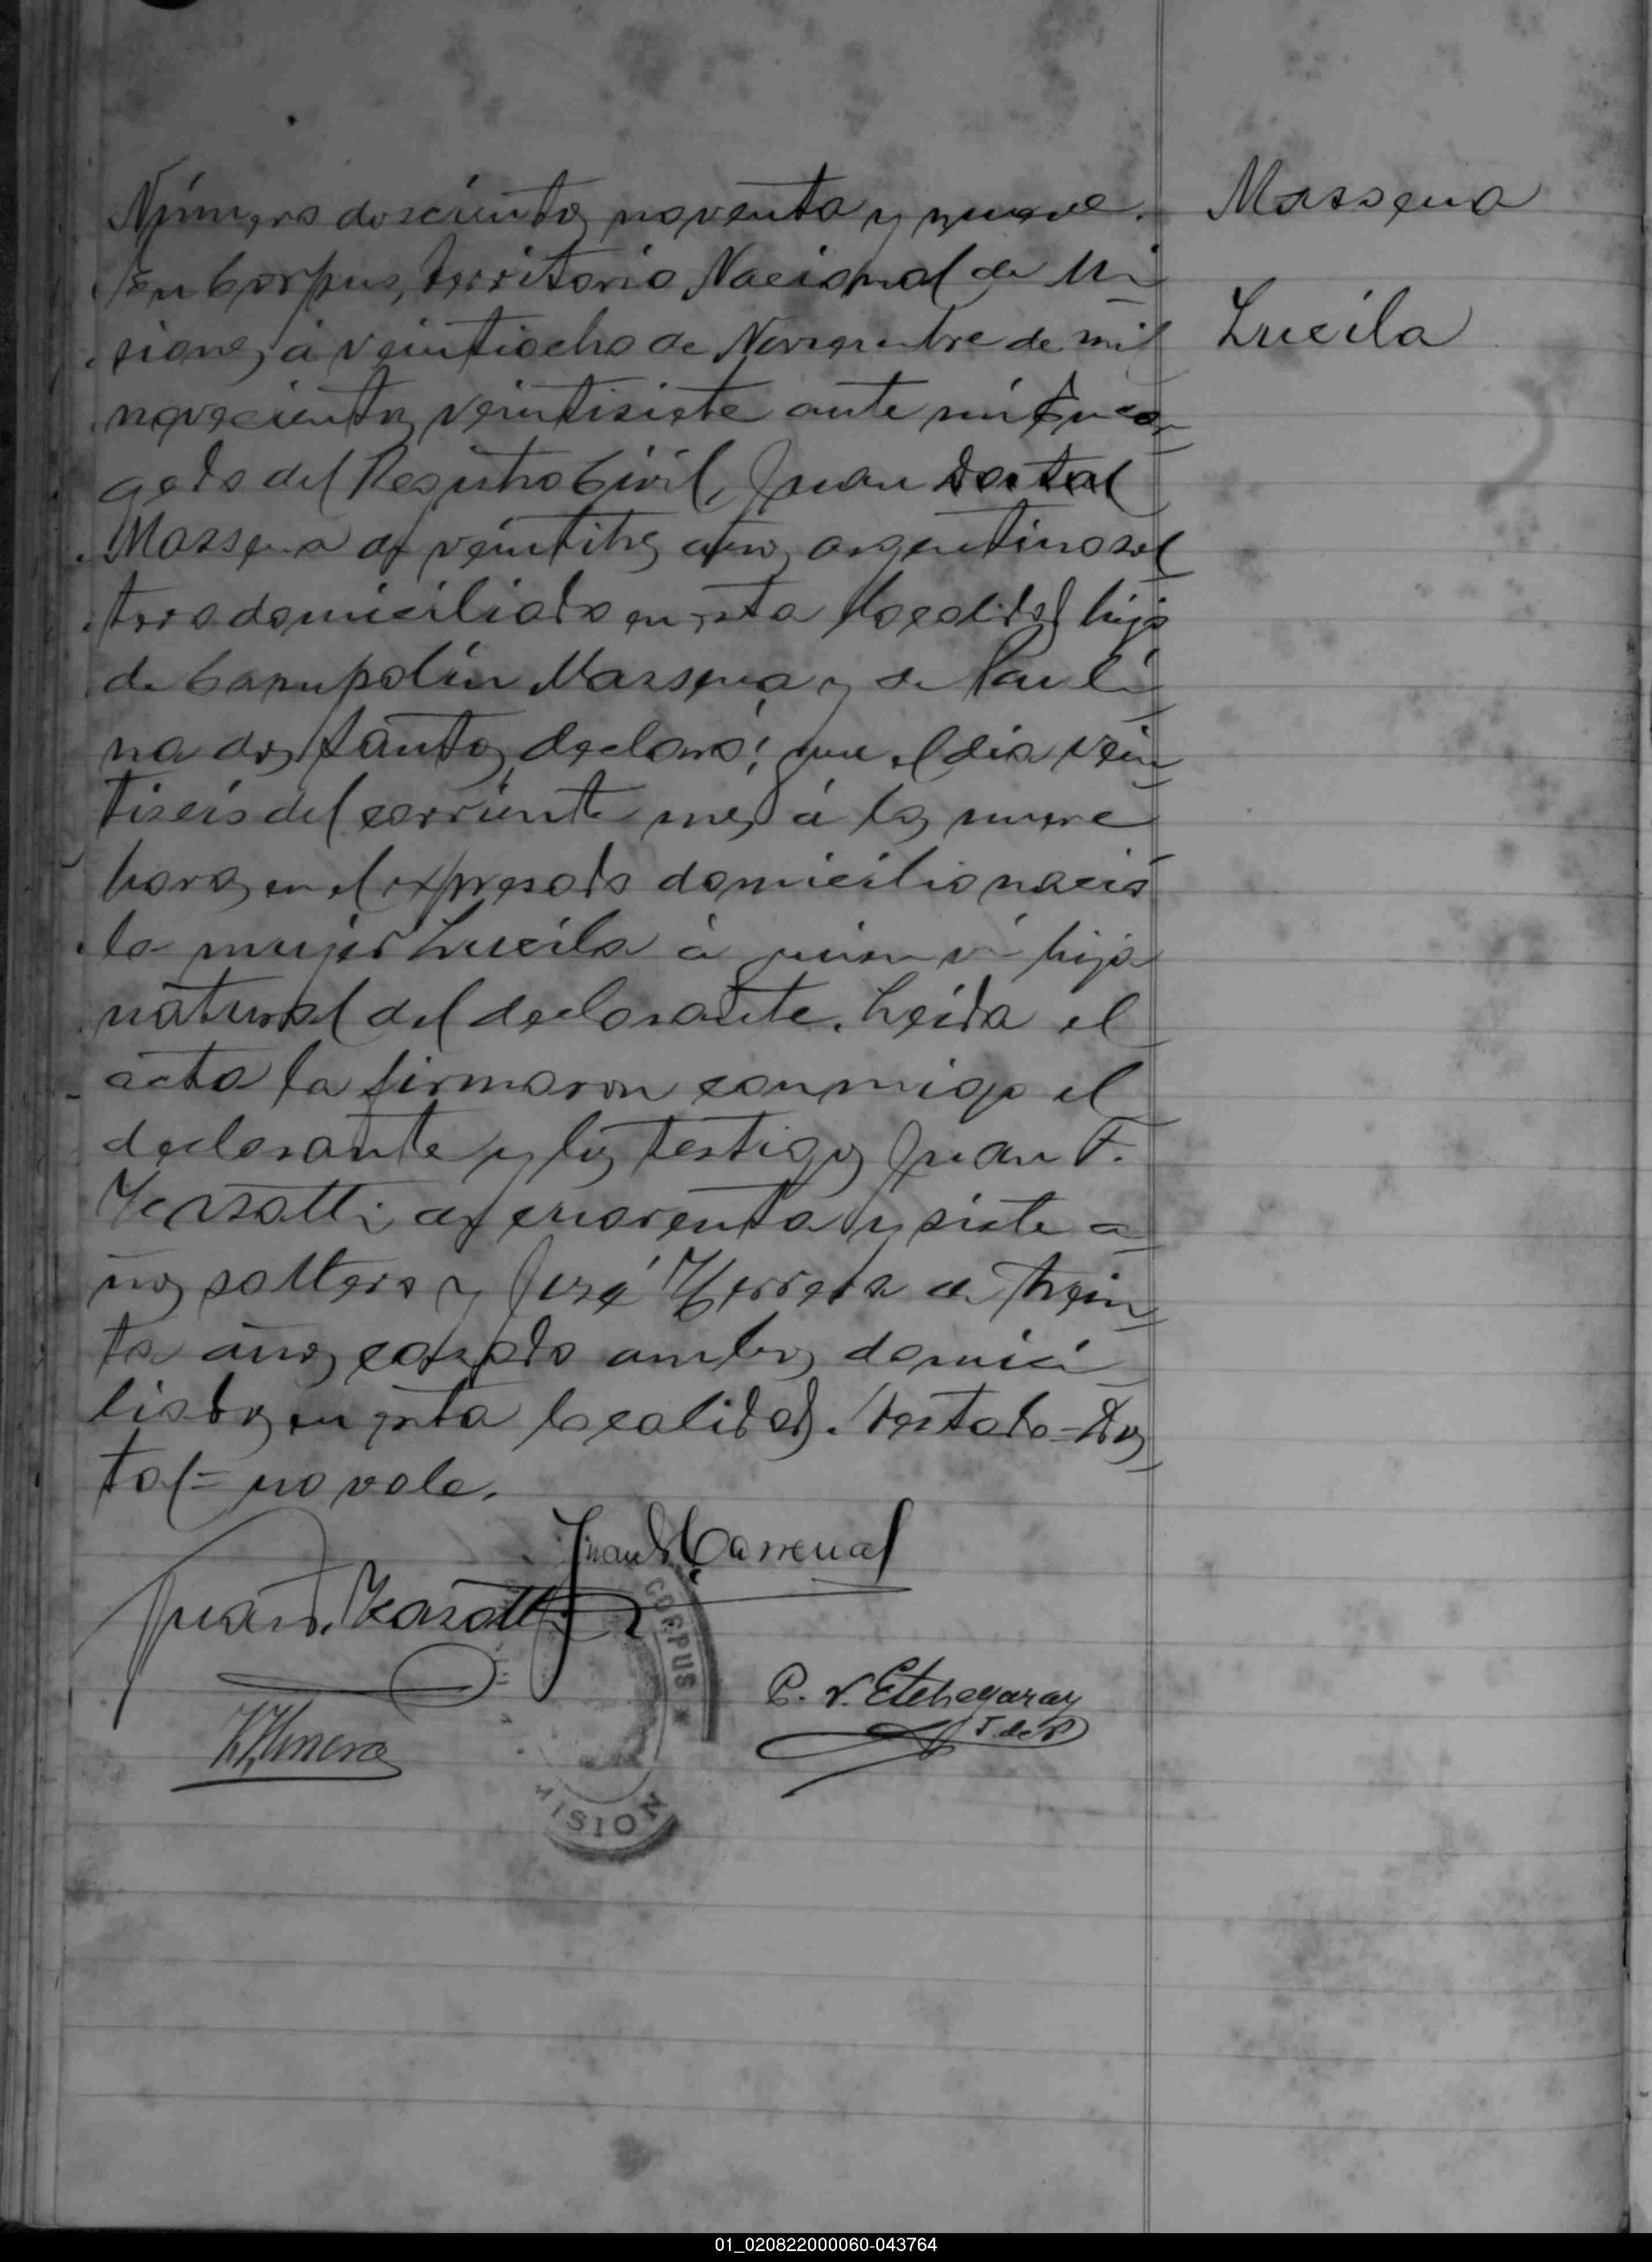 Número doscientos noventa y nueve.
En Corpus, Territorio Nacional de Mi
siones, á veintiocho de Noviembre de mil
novecientos veintisiete ante mí Encar
gado del Registro Civil, Juan Dostal
Massena de veintitres años, argentino sol
tero domiciliado en esta localidad hijo
de Caupolin Massena y de Pauli
na dos Santos, declaró: que el dia vein
tiseis del corriente mes á las nueve
horas en el expresado domicilio nació
la mujer Lucila á quien ví hija
natural del declarante. Leída el
acta la firmaron conmigo el
declarante y los testigos Juan F.
de cuarenta y siete a
ños soltero y José Herrera de trein
ta años casado ambos domici
liados en esta localidad. Testado=Dos
tal= no vale.
Massena
Lucila
Juan
Juan F.
CORPUS
P. V. Etchegaray
J. de P
MISION
01_020822000060-043764